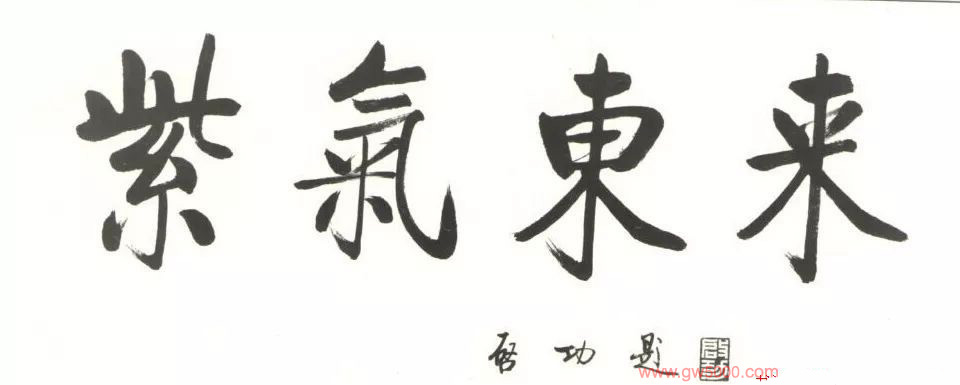 紫氣東来
启功题
啟功
www.gw5000.com